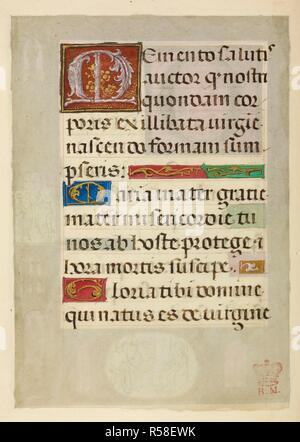 Memento salutis
auctor q nostri
quondam cor
poris ex illibata virgie
nascendo formam sum
pseris:
Maria mater gratie
mater misericordie tu
nos ab hoste protege &
hora mortis suscipe.
Gloria tibi domine
qui natus es de virgine
B.M.
alamy
R58EWK